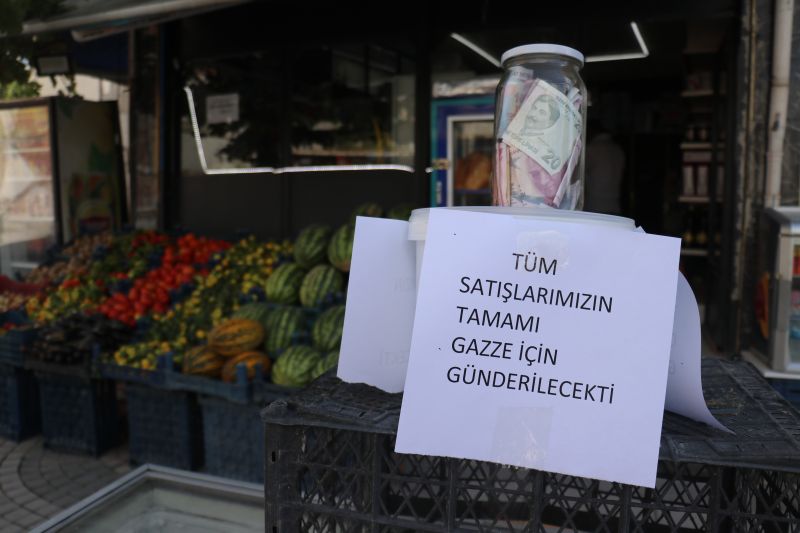 20
TÜM
SATIŞLARIMIZIN
TAMAMI
GAZZE İÇİN
GÜNDERİLECEKTİ